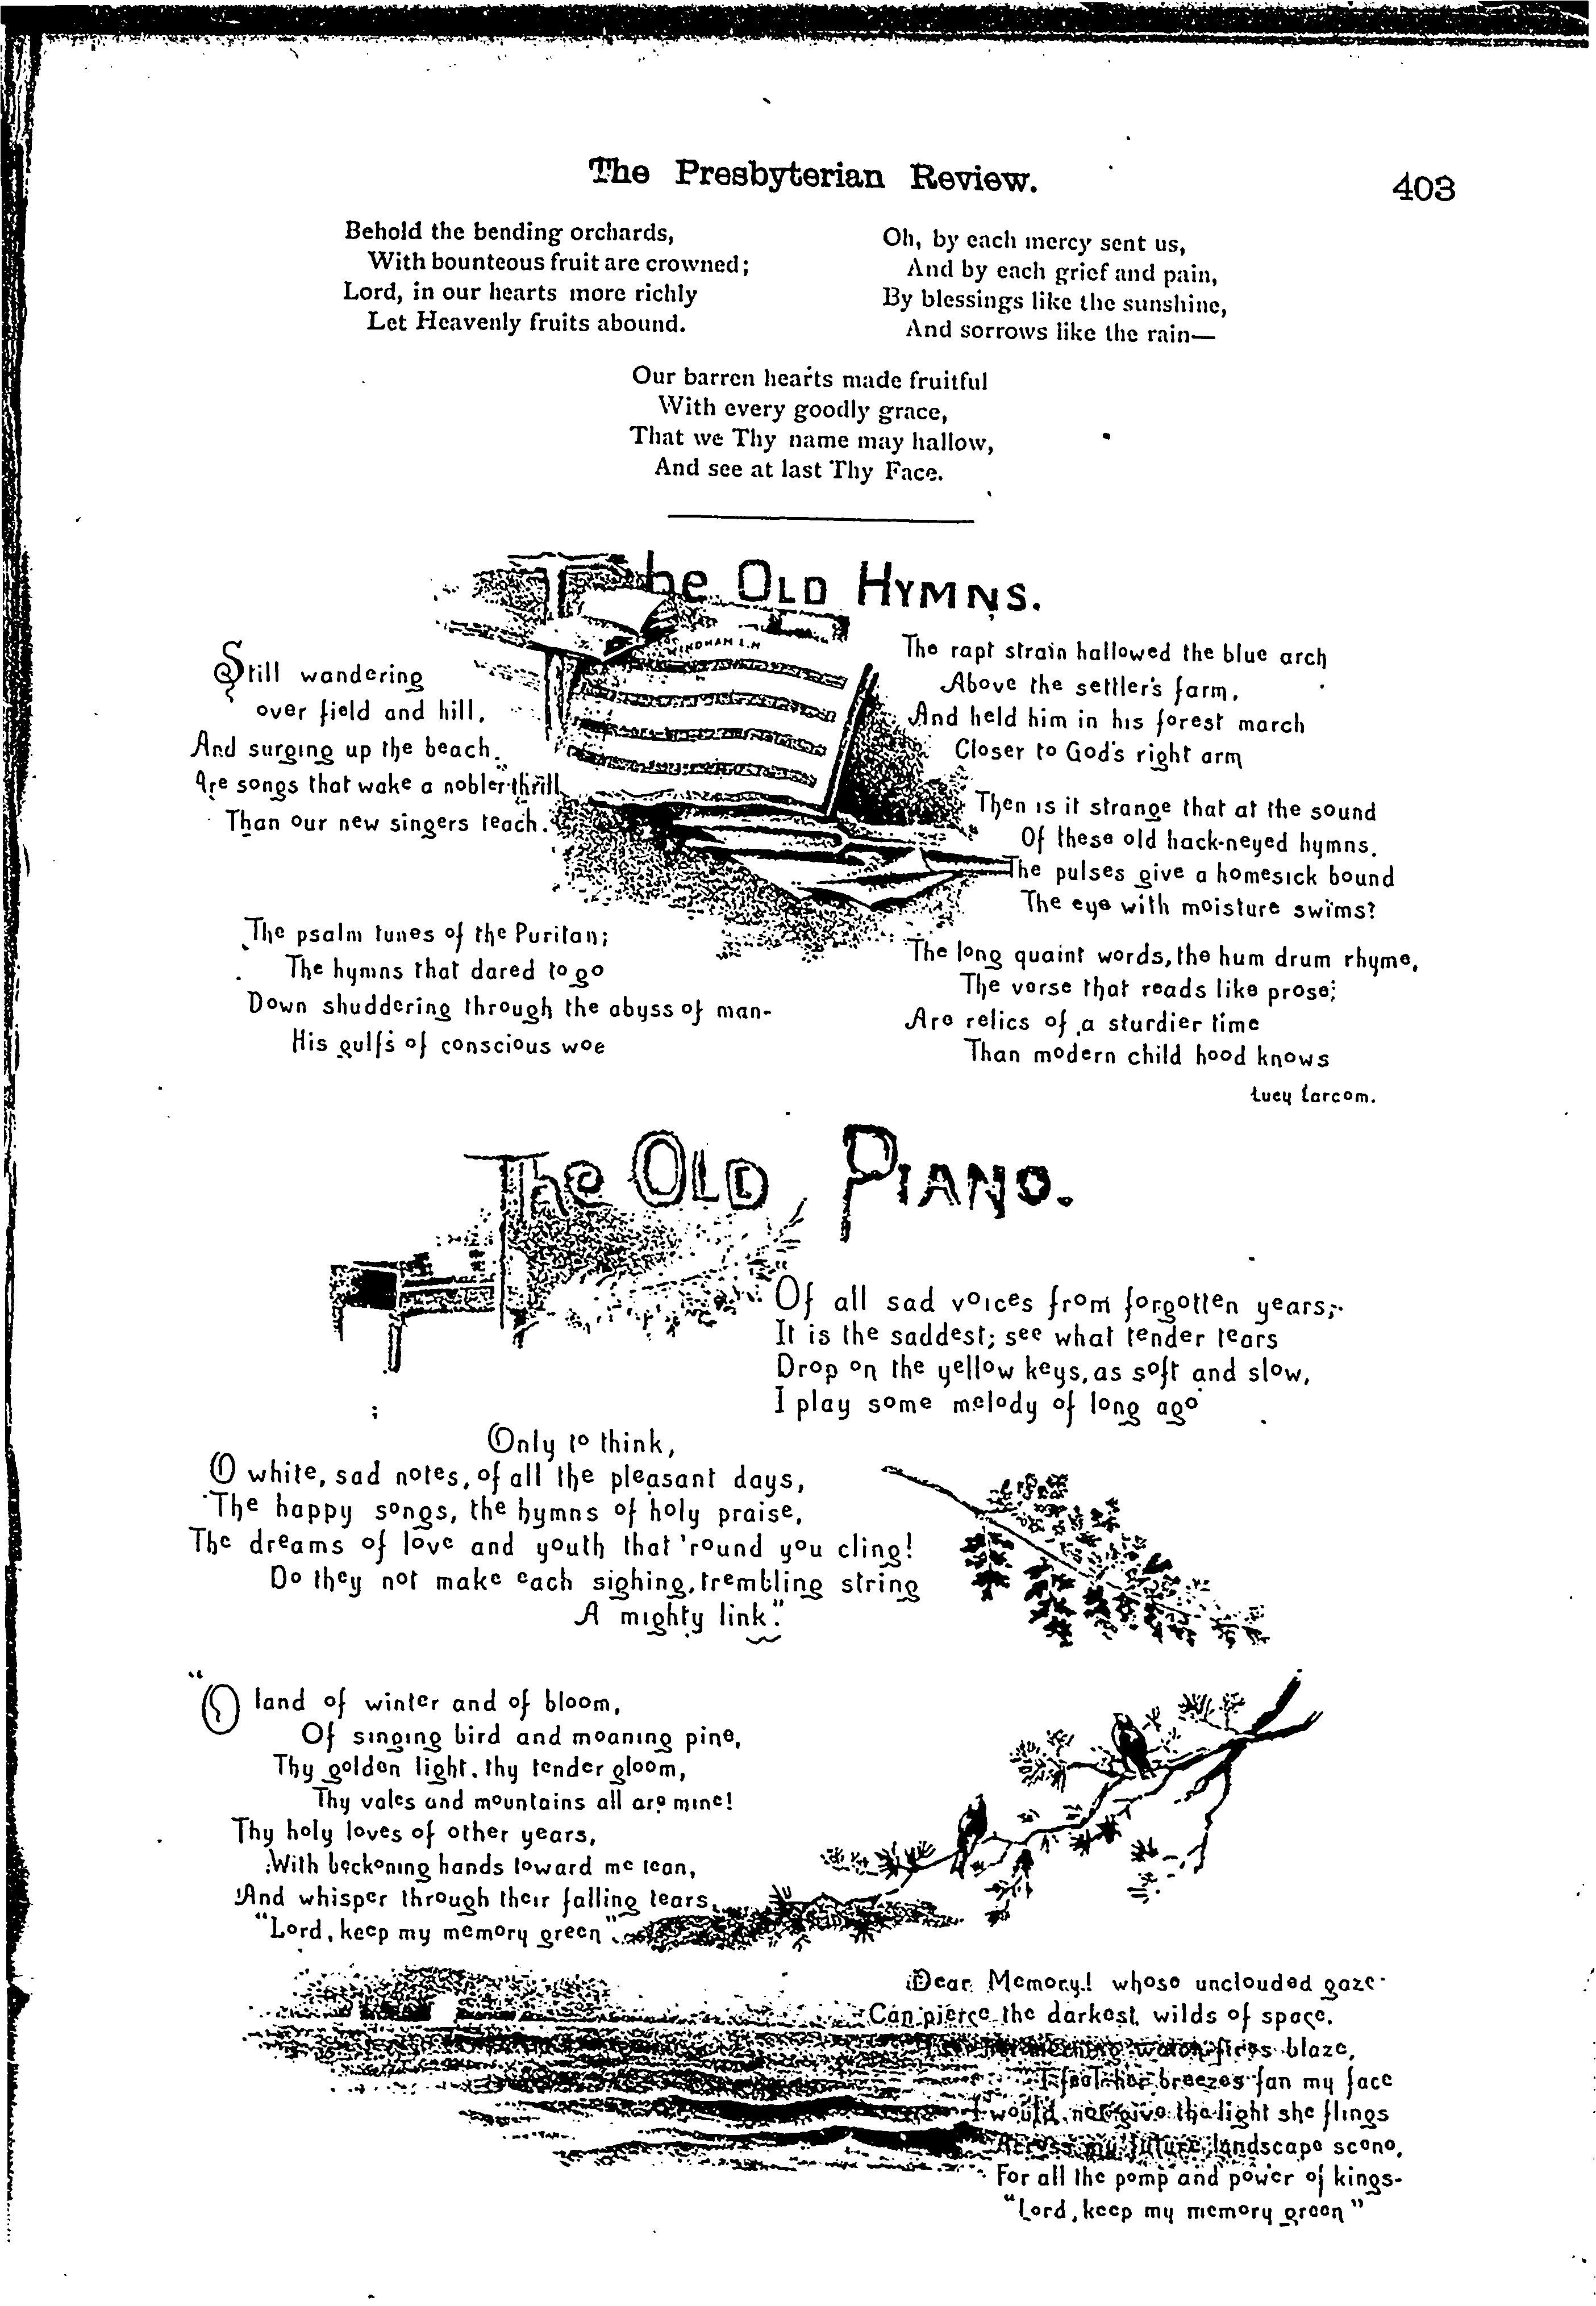 The Presbyterian Review.
403
Behold the bending orchards,
With bounteous fruit are crowned;
Lord, in our hearts more richly
Let Heavenly fruits abound.
Oh, by each mercy sent us,
And by each grief and pain,
By blessings like the sunshine,
And sorrows like the rain—
Our barren hearts made fruitful
With every goodly grace,
That we Thy name may hallow,
And see at last Thy Face.
The Old Hymns.
WINDHAM L.M
Still wandering
over field and hill,
And surging up the beach.
Are songs that wake a nobler thrill
Than our new singers teach.
The psalm tunes of the Puritan;
The hymns that dared to go
Down shuddering through the abyss of man-
His gulfs of conscious woe
The rapt strain hallowed the blue arch
Above the settler's farm,
And held him in his forest march
Closer to God's right arm
Then is it strange that at the sound
Of these old hack-neyed hymns.
The pulses give a homesick bound
The eye with moisture swims?
The long quaint words, the hum drum rhyme,
The verse that reads like prose;
Are relics of a sturdier time
Than modern child hood knows
Lucy Larcom.
The Old Piano.
"Of all sad voices from forgotten years,
It is the saddest; see what tender tears
Drop on the yellow keys, as soft and slow,
I play some melody of long ago
Only to think,
O white, sad notes, of all the pleasant days,
The happy songs, the hymns of holy praise,
The dreams of love and youth that 'round you cling!
Do they not make each sighing, trembling string
A mighty link."
"O land of winter and of bloom,
Of singing bird and moaning pine,
Thy golden light, thy tender gloom,
Thy vales and mountains all are mine!
Thy holy loves of other years,
With beckoning hands toward me lean,
And whisper through their falling tears,
"Lord, keep my memory green"
Dear Memory! whose unclouded gaze
Can pierce the darkest wilds of space.
morning watch-fires blaze,
I feel her breezes fan my face
I would not give the light she flings
Across my future landscape scene,
For all the pomp and power of kings-
"Lord, keep my memory green"